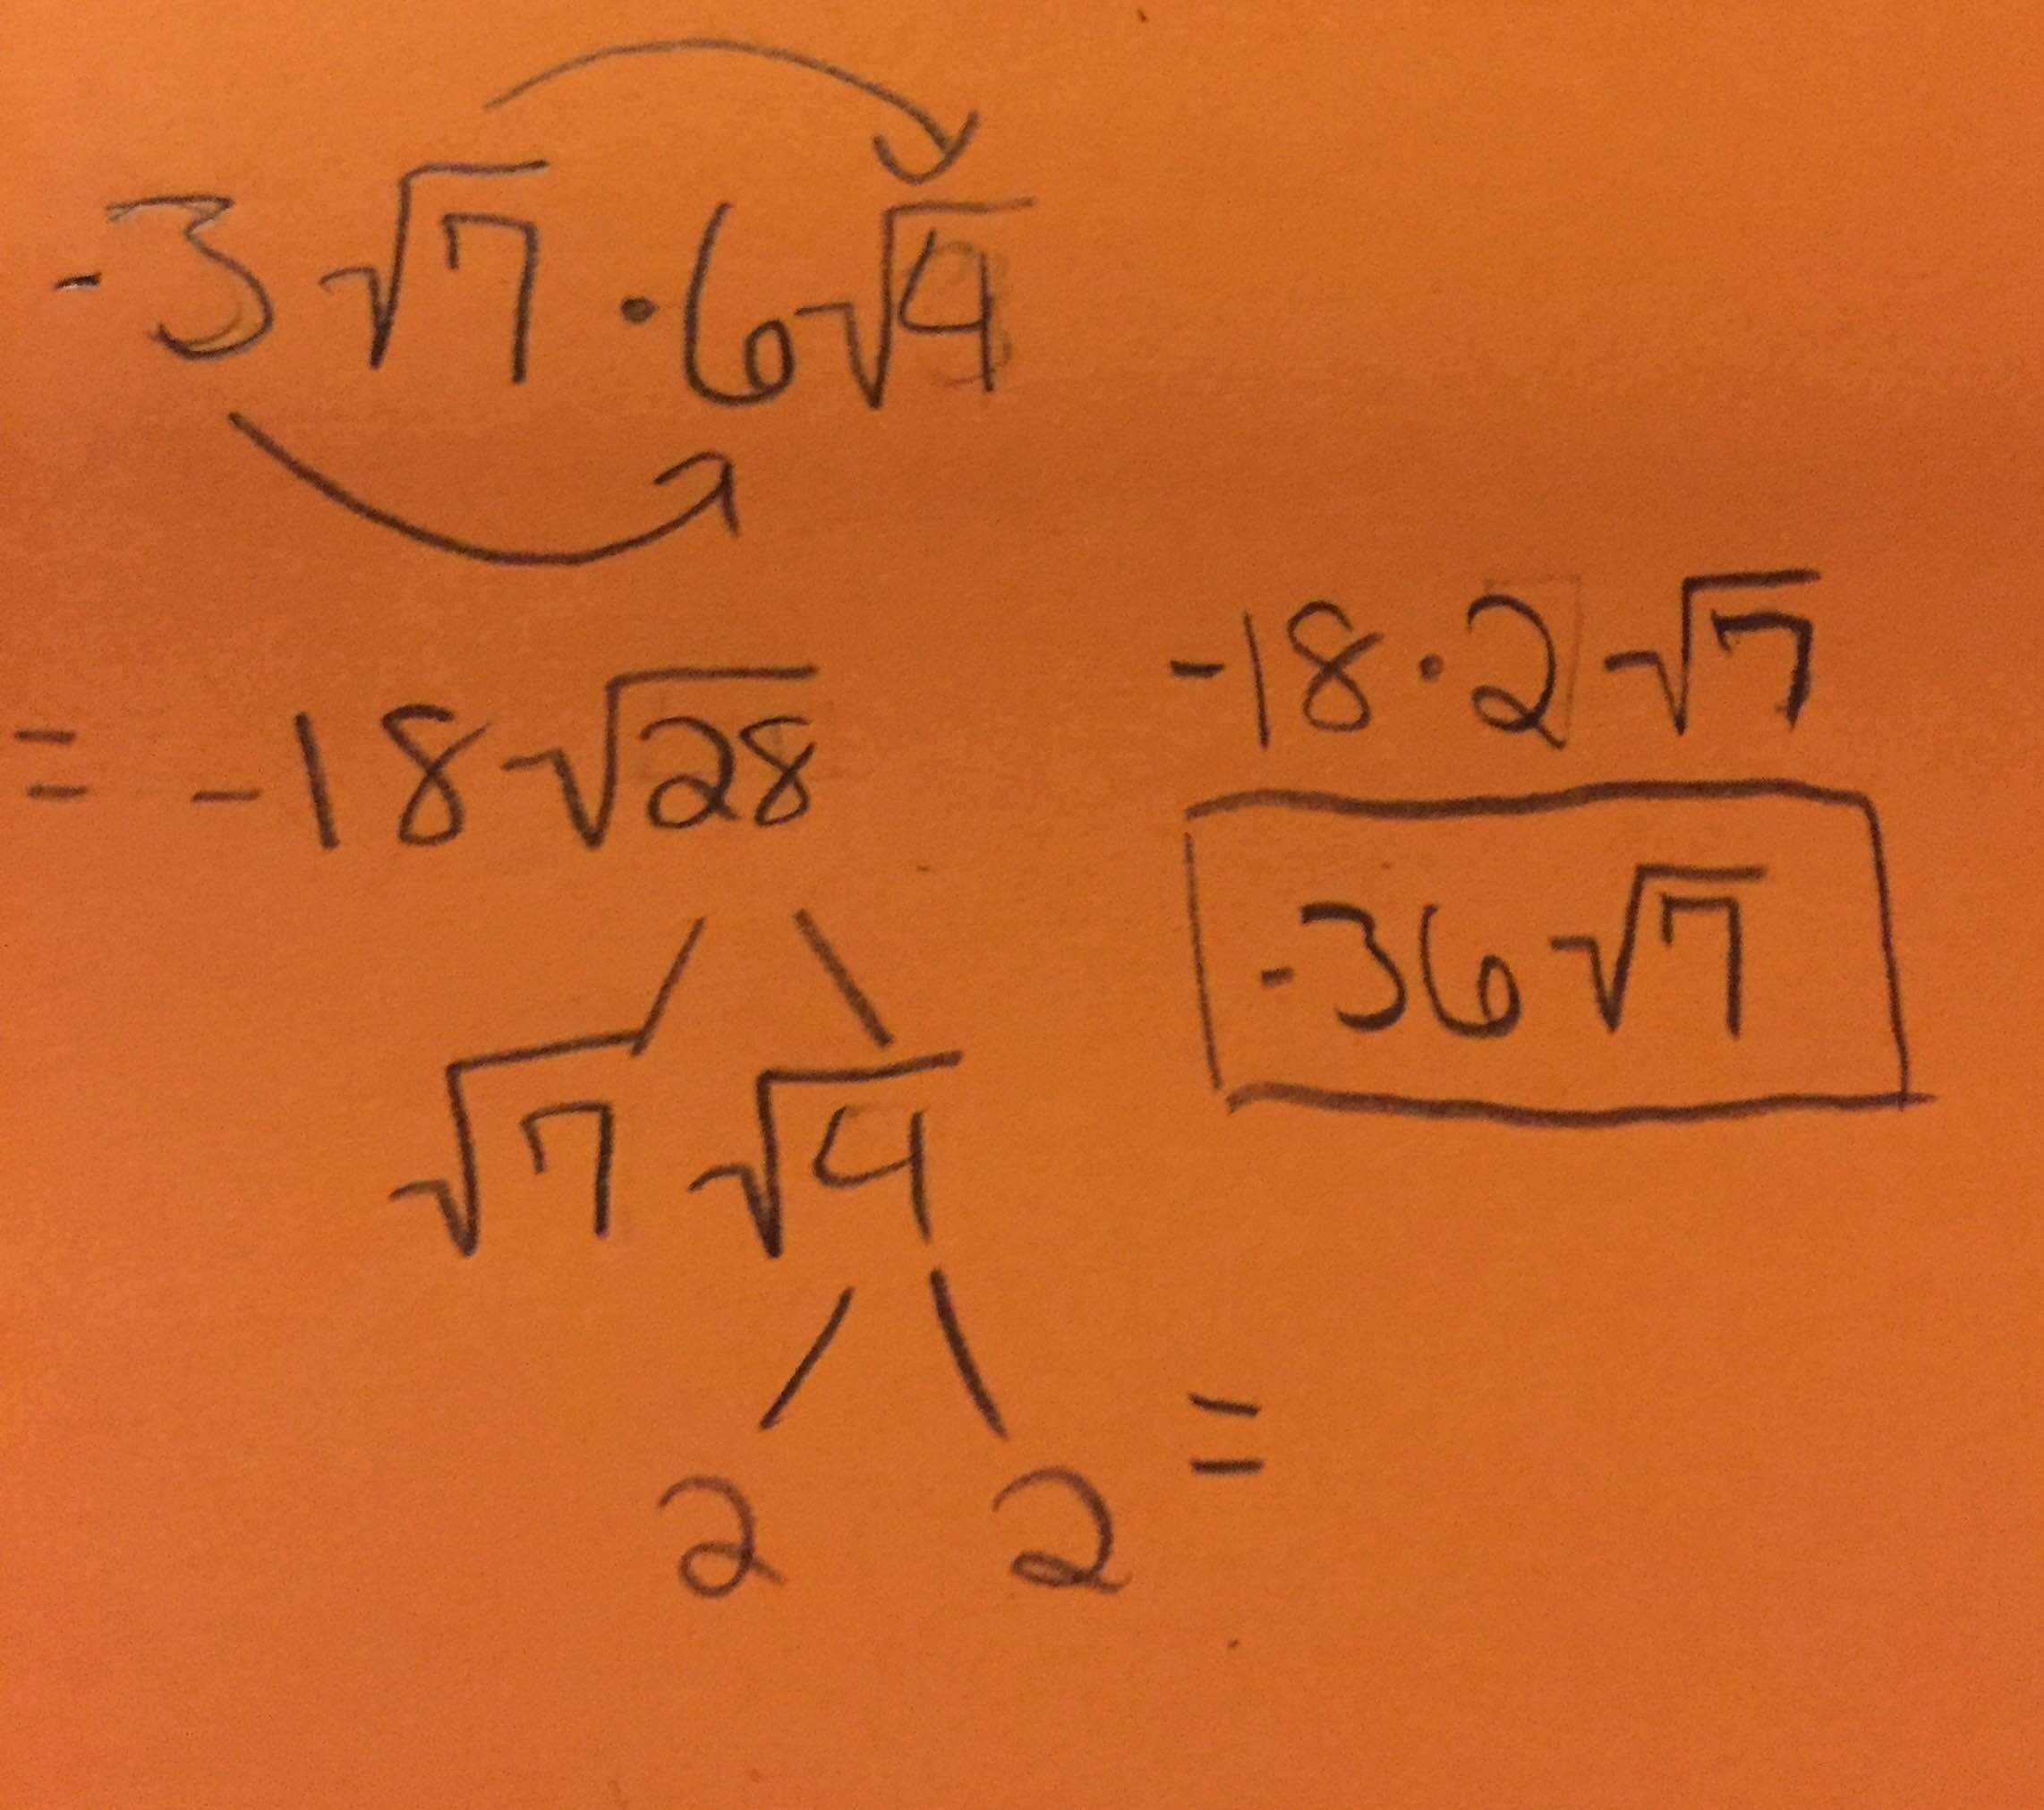 -3√7 · 6√4
= -18√28
√7 √4
2 2 =
-18·2√7
-36√7